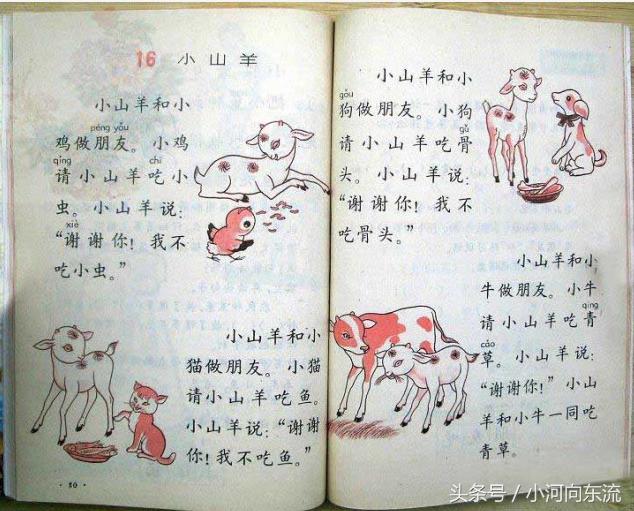 16 小山羊
小山羊和小
péng yǒu
鸡做朋友。小鸡
qǐng chī
请小山羊吃小
虫。小山羊说：
xiè
“谢谢你！我不
吃小虫。”
小山羊和小
猫做朋友。小猫
请小山羊吃鱼。
小山羊说：“谢谢
你！我不吃鱼。”
·50·
小山羊和小
gǒu
狗做朋友。小狗
gǔ
请小山羊吃骨
头。小山羊说：
“谢谢你！我不
吃骨头。”
小山羊和小
牛做朋友。小牛
qīng
请小山羊吃青
cǎo
草。小山羊说：
“谢谢你！”小山
羊和小牛一同吃
青草。
头条号／小河向东流